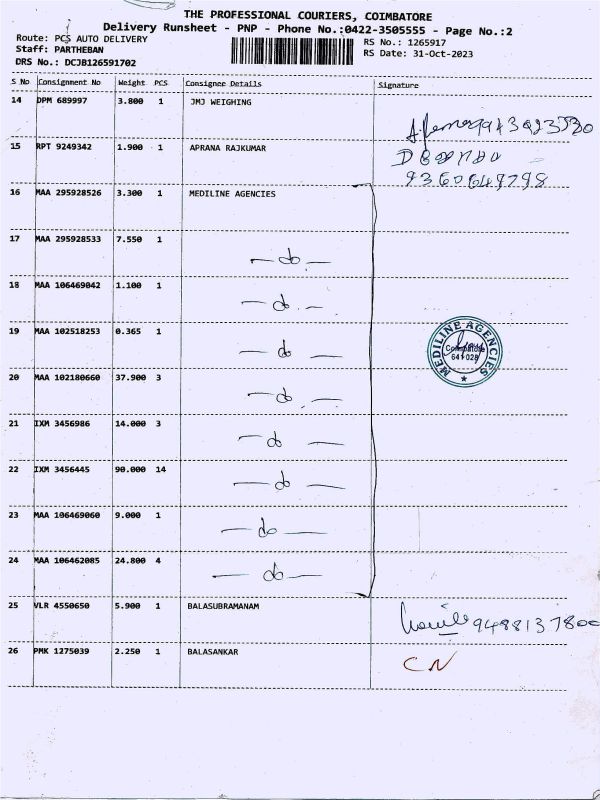 THE PROFESSIONAL COURIERS, COIMBATORE
Delivery Runsheet - PNP - Phone No.:0422-3505555 - Page No.:2
Route: PCS AUTO DELIVERY
RS No.: 1265917
Staff: PARTHEBAN
RS Date: 31-Oct-2023
DRS No.: DCJB126591702
S No Consignment No Weight PCS Consignee Details Signature
14 DPM 689997 3.800 1 JMJ WEIGHING
15 RPT 9249342 1.900 1 APRANA RAJKUMAR
9360649798
16 MAA 295928526 3.300 1 MEDILINE AGENCIES
17 MAA 295928533 7.550 1 — do —
18 MAA 106469042 1.100 1 — do —
19 MAA 102518253 0.365 1 — do —
MEDILINE AGENCIES
Coimbatore
641 028
20 MAA 102180660 37.900 3 — do —
21 IXM 3456986 14.000 3 — do —
22 IXM 3456445 90.000 14 — do —
23 MAA 106469060 9.000 1 — do —
24 MAA 106462085 24.800 4 — do —
25 VLR 4550650 5.900 1 BALASUBRAMANAM 9488137800
26 PMK 1275039 2.250 1 BALASANKAR CN